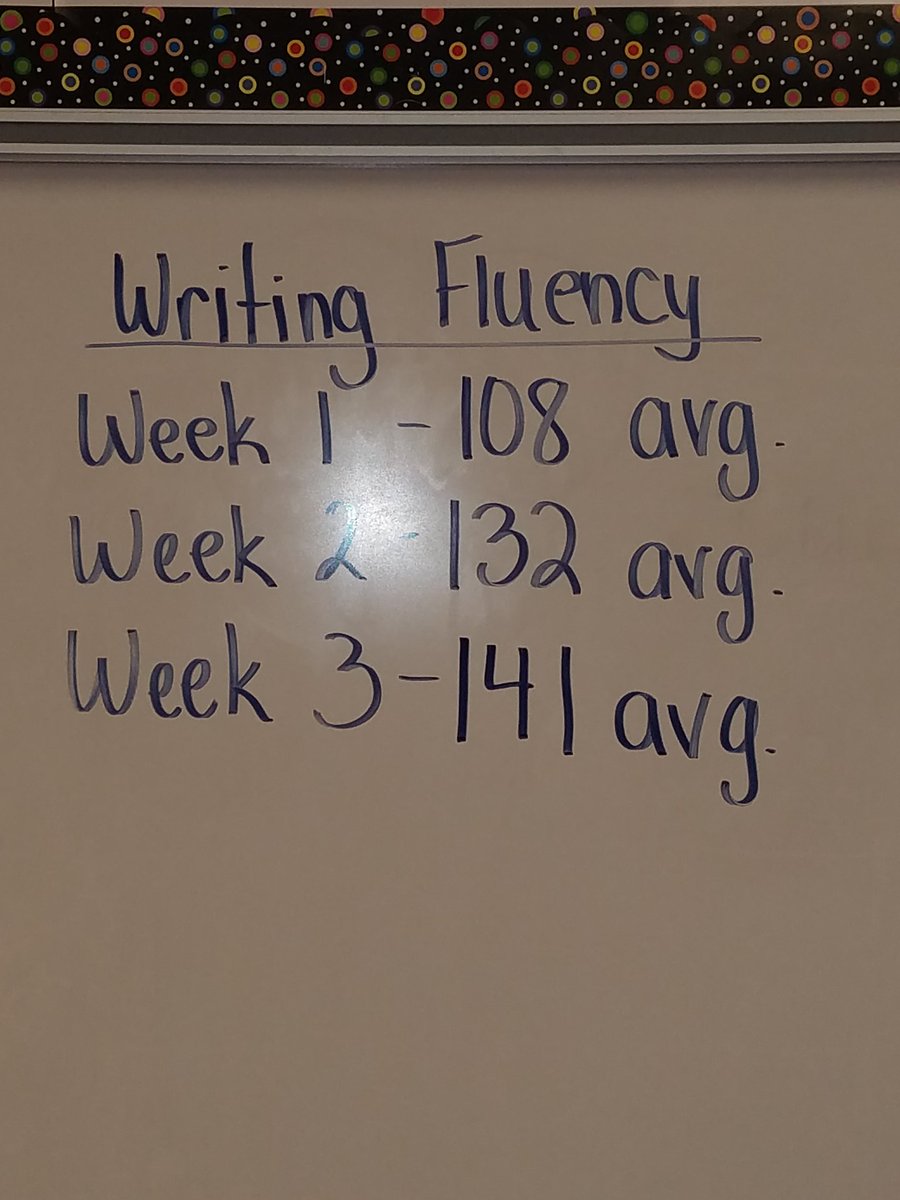 Writing Fluency
Week 1 - 108 avg.
Week 2 - 132 avg.
Week 3 - 141 avg.